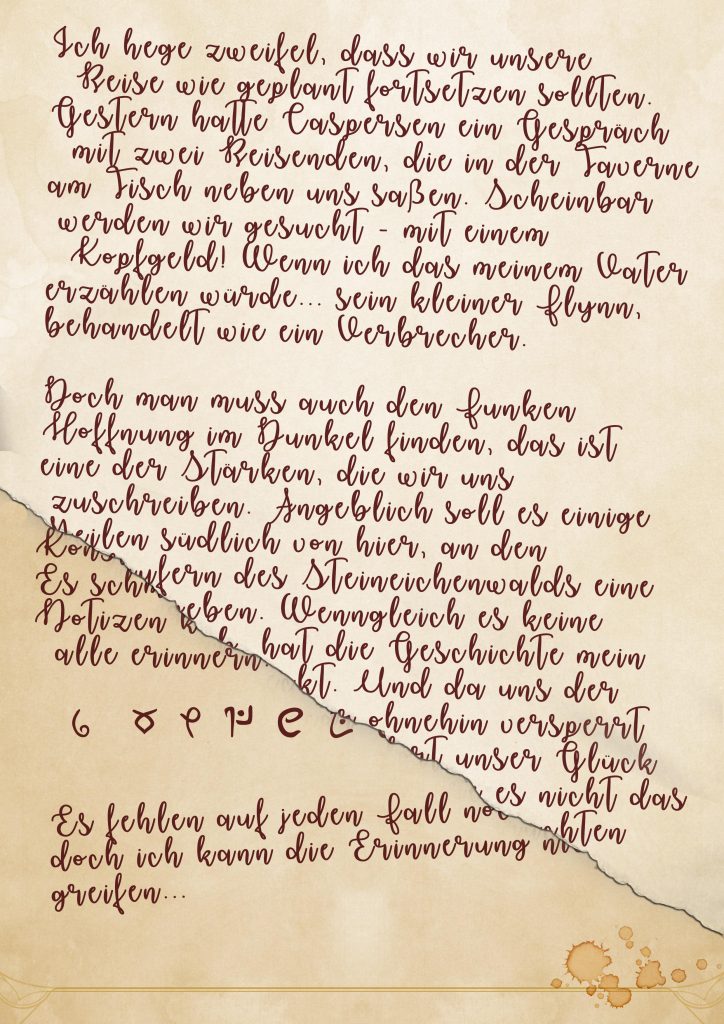 Ich hege zweifel, dass wir unsere
Reise wie geplant fortsetzen sollten.
Gestern hatte Caspersen ein Gespräch
mit zwei Reisenden, die in der Taverne
am Tisch neben uns saßen. Scheinbar
werden wir gesucht - mit einem
Kopfgeld! Wenn ich das meinem Vater
erzählen würde... sein kleiner Flynn,
behandelt wie ein Verbrecher.
Doch man muss auch den Funken
Hoffnung im Dunkel finden, das ist
eine der Stärken, die wir uns
zuschreiben. Angeblich soll es einige
Meilen südlich von hier, an den
des Steineichenwalds eine
Wenngleich es keine
hat die Geschichte mein
Und da uns der
ohnehin versperrt
unser Glück
es nicht das
Es
Notizen
alle erinnern.
Es fehlen auf jeden Fall
doch ich kann die Erinnerung
greifen...